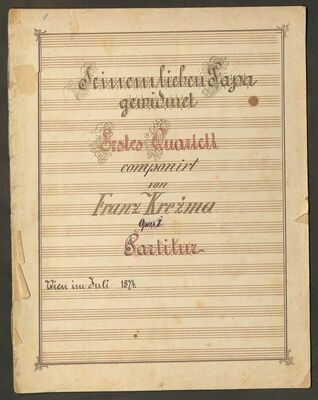 Seinem lieben Papa
gewidmet
Erstes Quartett
componirt
von
Franz Krežma
Opus 1
Partitur
Wien im Juli 1874.